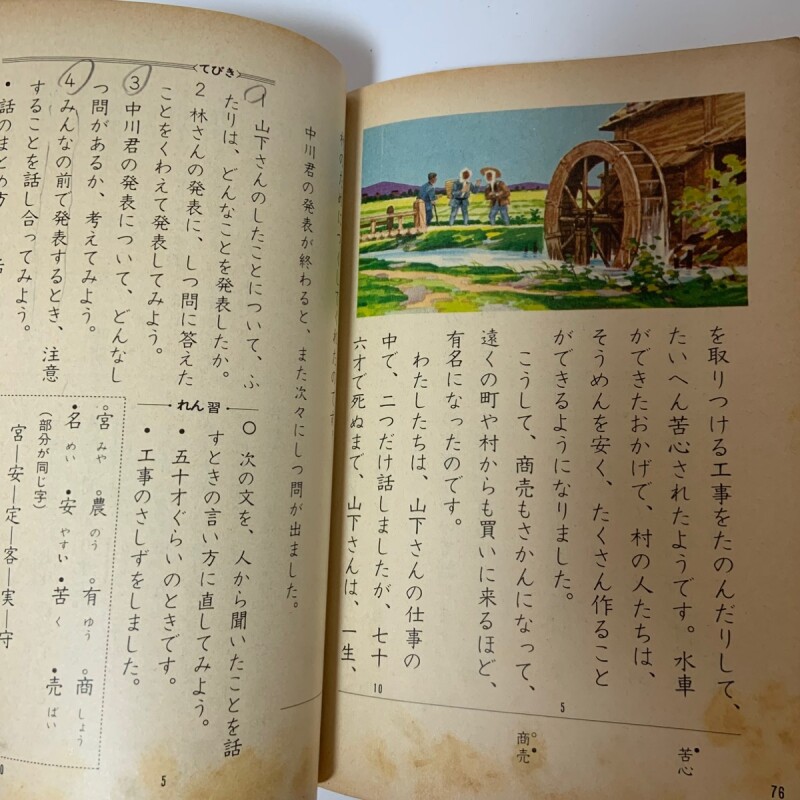 を取りつける工事をたのんだりして、
たいへん苦心されたようです。水車
ができたおかげで、村の人たちは、
そうめんを安く、たくさん作ること
ができるようになりました。
こうして、商売もさかんになって、
遠くの町や村からも買いに来るほど、
有名になったのです。
わたしたちは、山下さんの仕事の
中で、二つだけ話しましたが、七十
六才で死ぬまで、山下さんは、一生、
5
10
苦心
商売
76
中川君の発表が終わると、また次々にしつ問が出ました。
〈てびき〉
1 山下さんのしたことについて、ふ
たりは、どんなことを発表したか。
2 林さんの発表に、しつ問に答えた
ことをくわえて発表してみよう。
3 中川君の発表について、どんなし
つ問があるか、考えてみよう。
4 みんなの前で発表するとき、注意
することを話し合ってみよう。
・話のまとめ方
れん習
○ 次の文を、人から聞いたことを話
すときの言い方に直してみよう。
・五十才ぐらいのときです。
・工事のさしずをしました。
宮 みや 農 のう 有 ゆう 商 しょう
名 めい 安 やすい 苦 く 売 ばい
(部分が同じ字)
宮―安―定―客―実―守
5